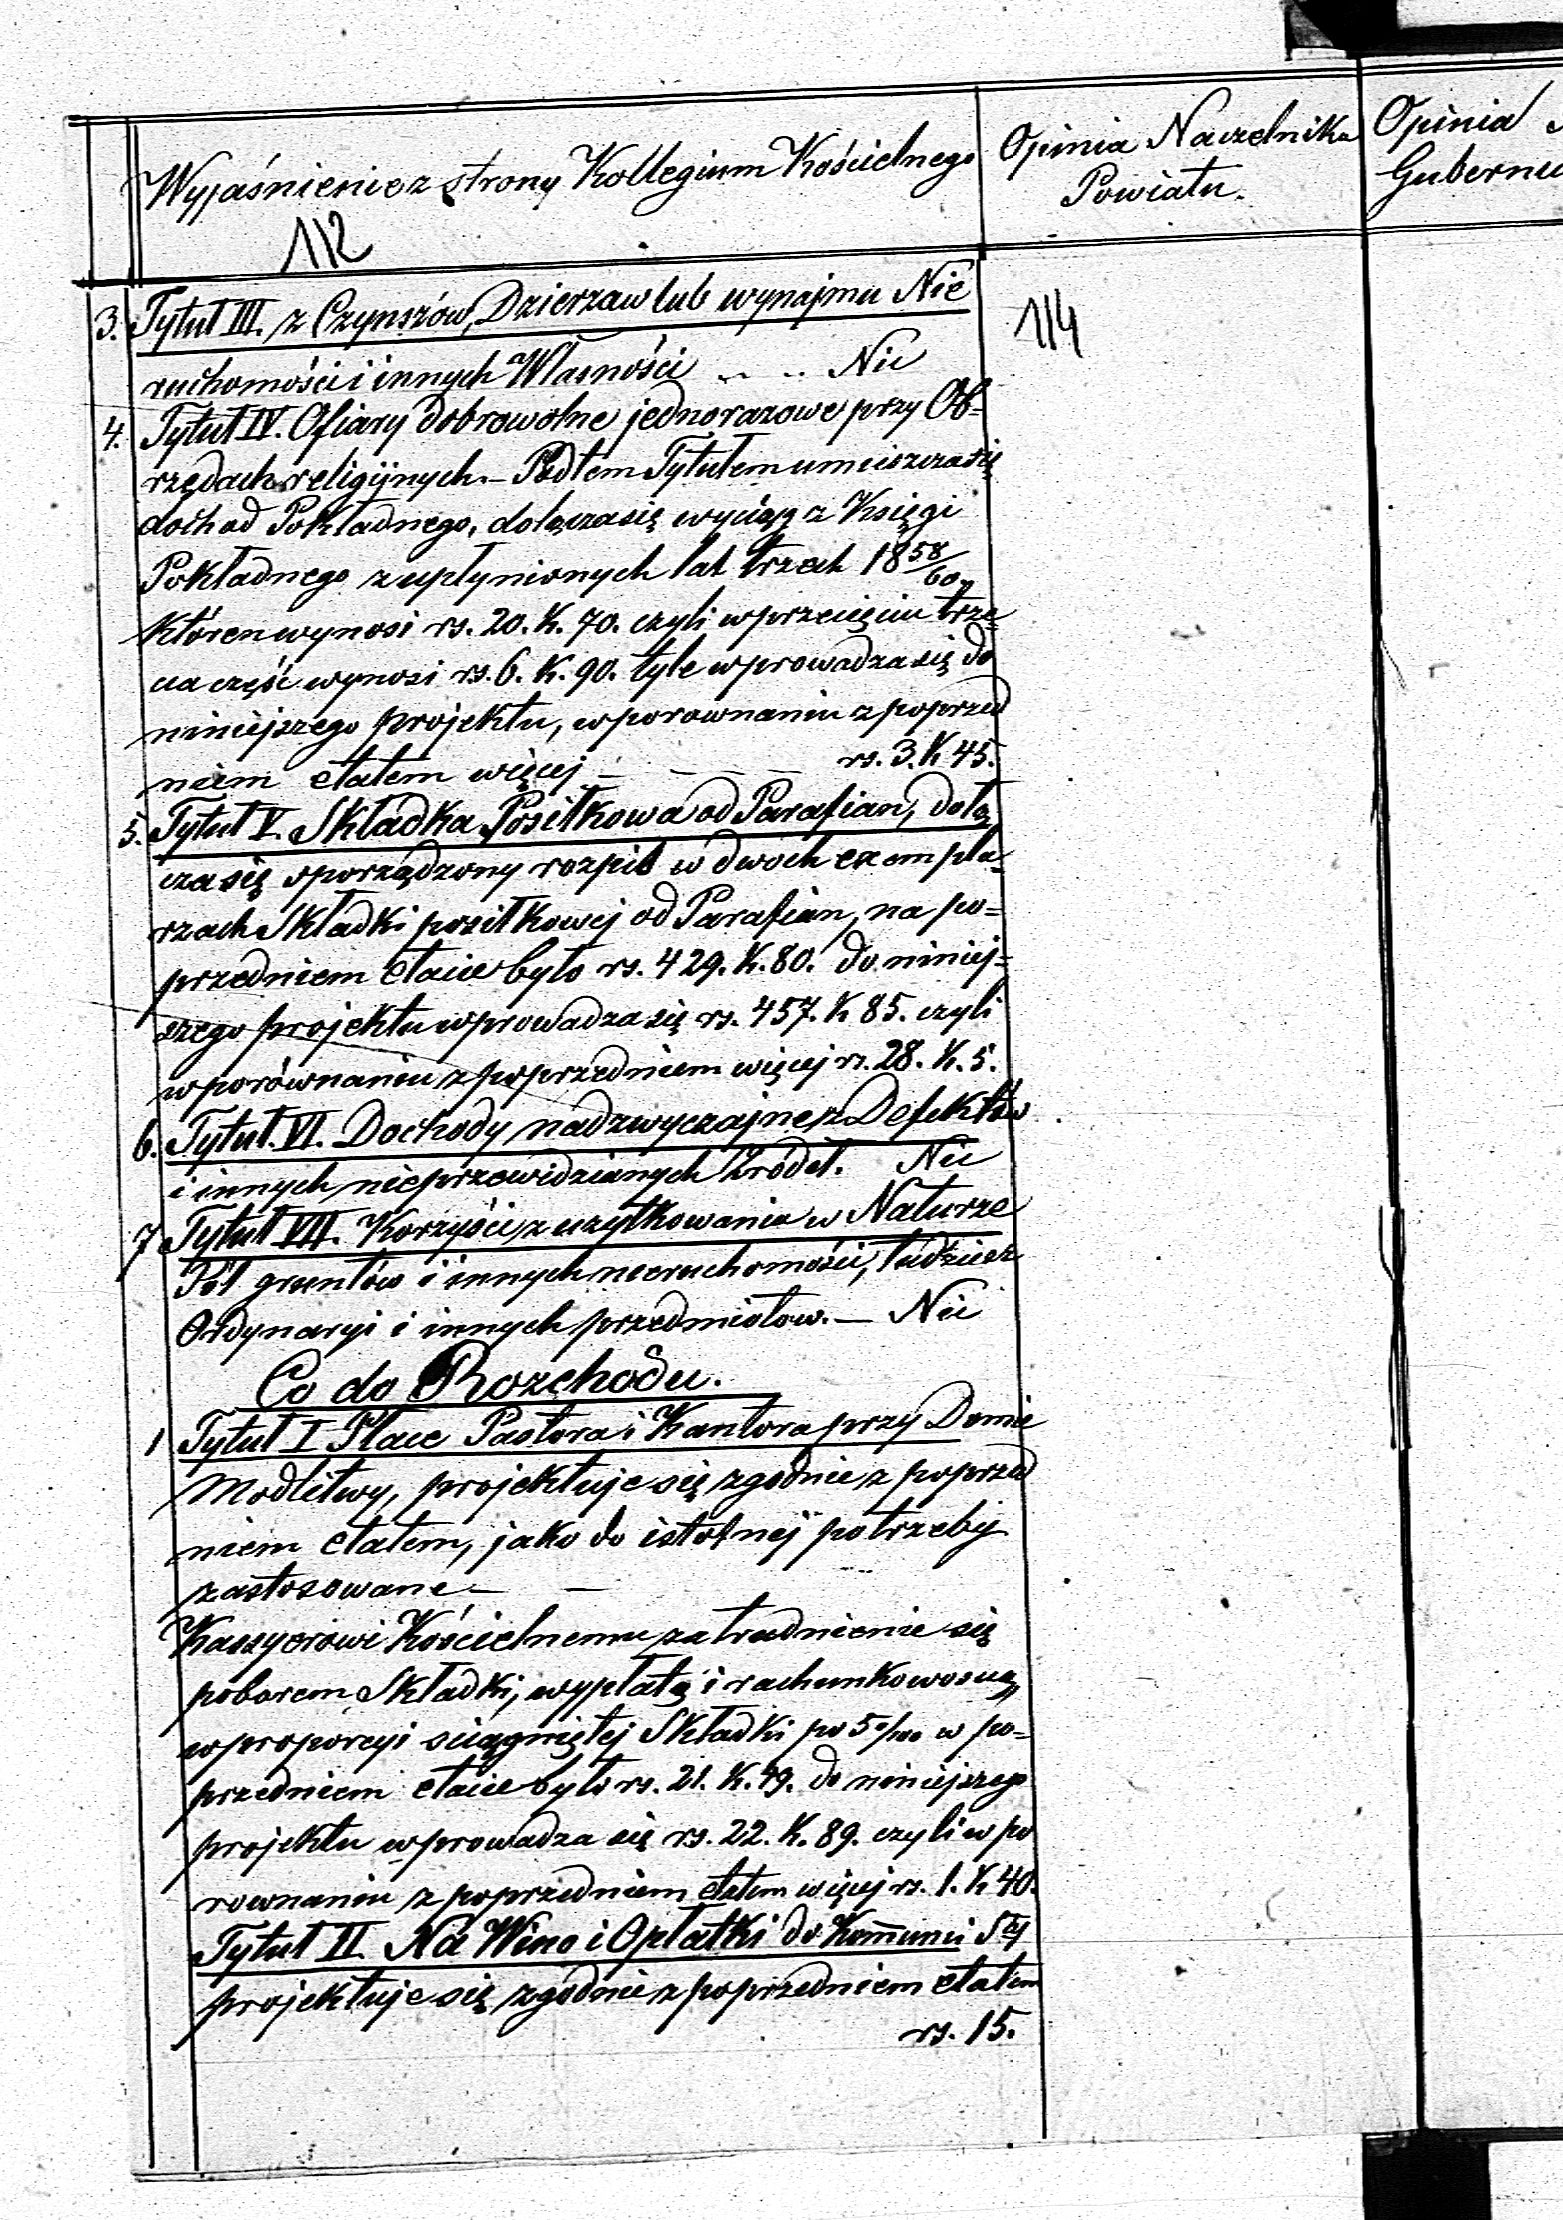 Wyjaśnienie z strony Kollegium Kościelnego
Opinia Naczelnika
Powiatu.
Opinia
Gubernu
112
114
3. Tytuł III. z Czynszów, Dzierzaw lub wynajmu Nie
ruchomości i innych Własności ... Nic
4. Tytuł IV. Ofiary dobrowolne jednorazowe przy Ob=
rzędach religijnych. – Pod tem Tytułem umieszcza się
dochod Pokładnego, dołącza się wyciąg z Księgi
Pokładnego z upłynionych lat trzech 18 58/60,
któren wynosi rs. 20. K. 70. czyli w przecięciu trze=
cia część wynosi rs. 6. K. 90. tyle wprowadza się do
niniejszego projektu, w porownaniu z poprzed
niem etatem więcej – – – – rs. 3. K 45.
5. Tytuł V. Składka Posiłkowa od Parafian, dołą
cza się sporządzony rozpis w dwoch exempla=
rzach Składki posiłkowej od Parafian, na po=
przedniem etacie było rs. 429. K. 80. do niniej=
szego projektu wprowadza się rs. 457. K 85. czyli
w porównaniu z poprzedniem więcej rs. 28. K. 5.
6. Tytuł. VI. Dochody nadzwyczajne z Defektów
i innych nieprzewidzianych Źrodeł. Nic
7 Tytuł VII. Korzyści z uzytkowania w Naturze
Pól gruntów i innych nieruchomości, tudziesz
Ordynaryi i innych przedmiotow. – Nic
Co do Rozchodu.
1 Tytuł I Płace Pastora i Kantora przy Domie
Modlitwy, projektuje się zgodnie z poprzed
niem etatem, jako do istotnej potrzeby
zastosowane – –
Kassyerowi Kościelnemu za trudnienie się
poborem Składki, wypłatą i rachunkowoscią,
w proporcyi sciągniętej Składki po 5 0/100 w po=
przedniem etacie było rs. 21. K. 49. do niniejszego
projektu wprowadza się rs. 22. K. 89. czyli w po
rownaniu z poprzedniem etatem więcej rs. 1. K 40.
Tytuł II. Na Wino i Opłatki do Kom̄unii Stej
projektuje się zgodnie z poprzedniem etatem
rs. 15.